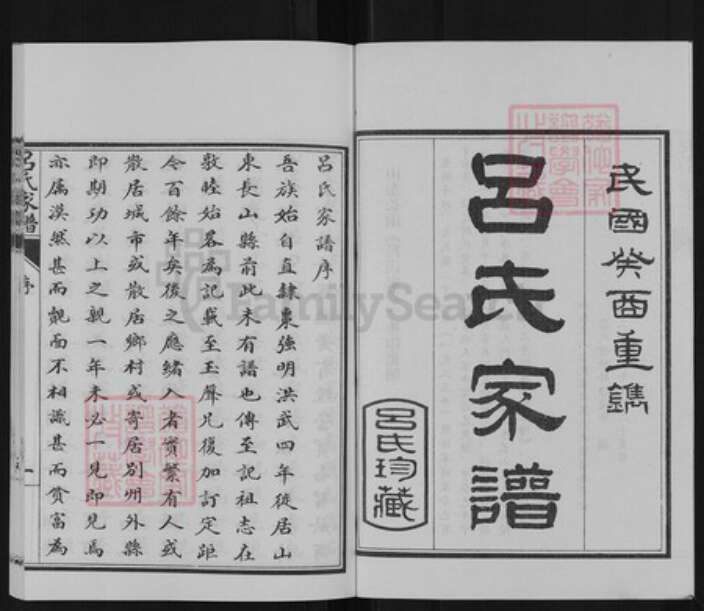 民國癸酉重鐫
呂氏家譜
呂氏珍藏
呂氏家譜序
吾族始自直隸棗強明洪武四年徙居山
東長山縣前此未有譜也傳至記祖志在
敦睦始畧為記載至玉聲兄復加訂定距
今百餘年矣後之應緒入者實繁有人或
散居城市或散居鄉村或寄居別州外縣
即期功以上之親一年未必一見即見焉
亦屬漠然甚而覿面不相識甚而貧富為
呂氏家譜
序
一
FamilySearch